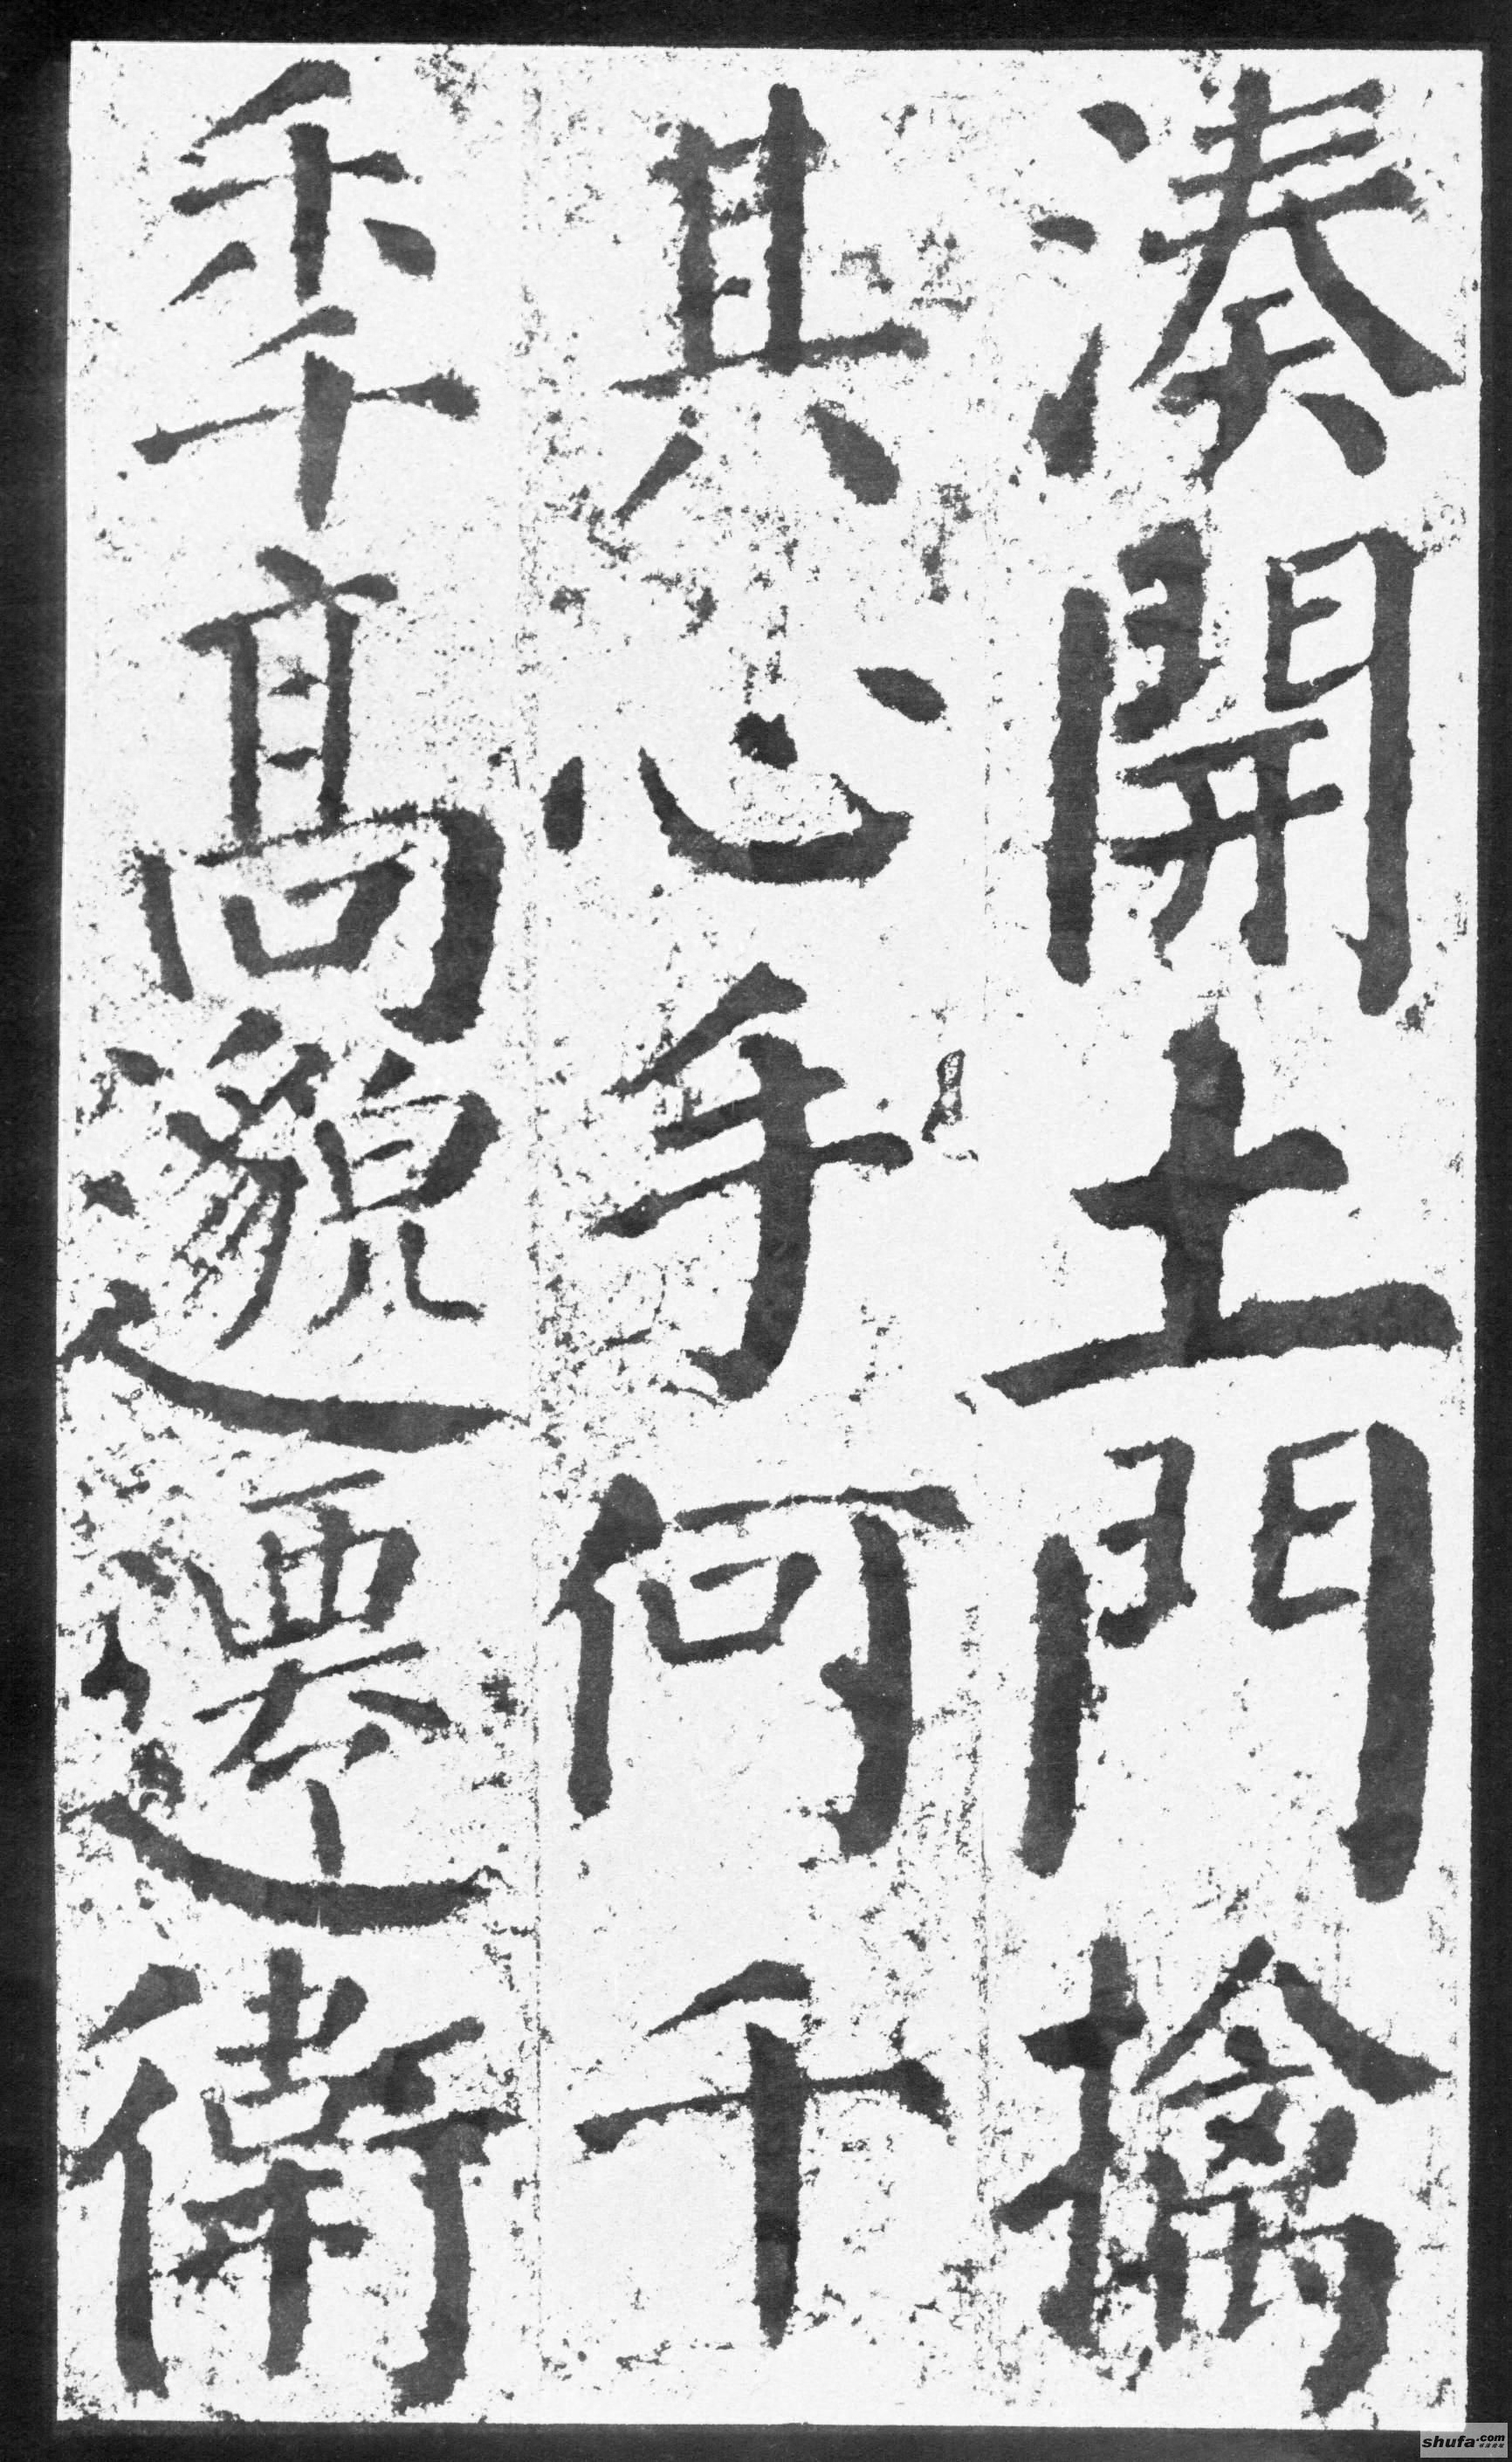 湊開土門擒
其心手何千
秊高邈遷衛
shufa.com